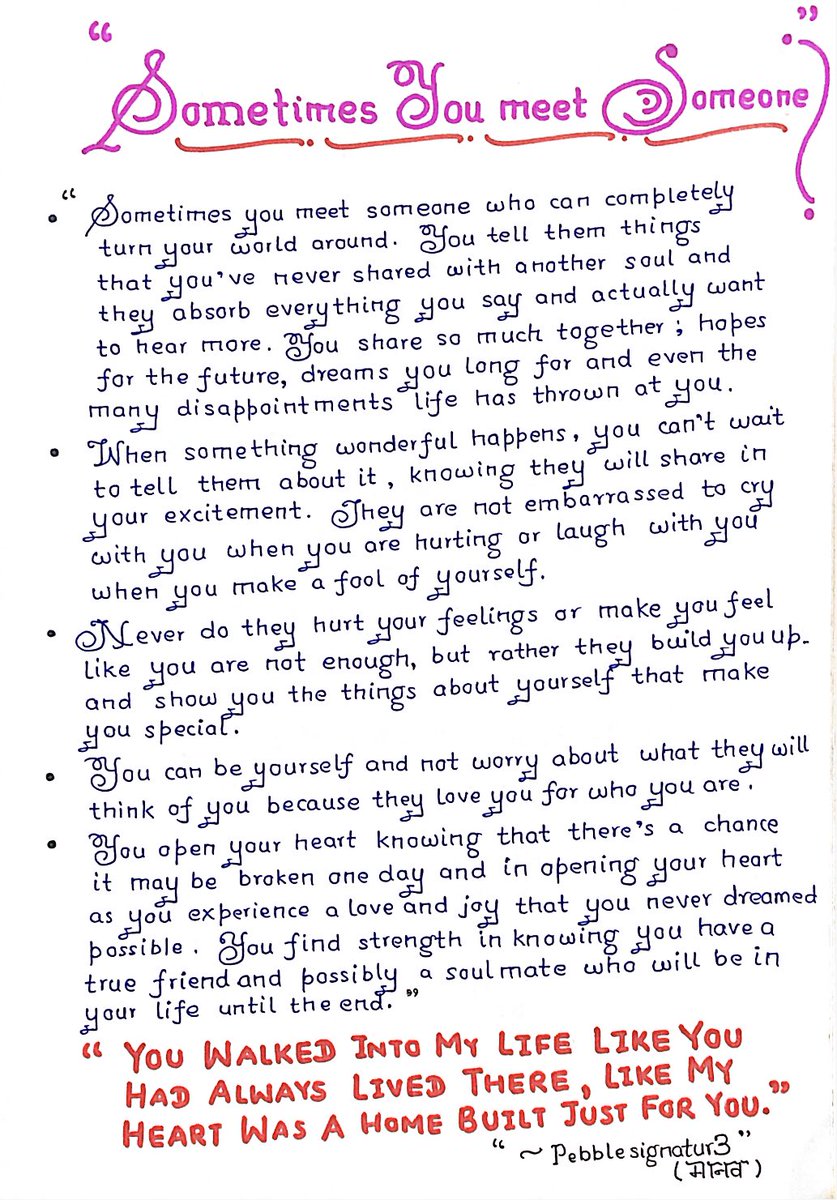 “ Sometimes You meet Someone ”
• “ Sometimes you meet someone who can completely
turn your world around. You tell them things
that you've never shared with another soul and
they absorb everything you say and actually want
to hear more. You share so much together ; hopes
for the future, dreams you long for and even the
many disappointments life has thrown at you.
• When something wonderful happens, you can't wait
to tell them about it, knowing they will share in
your excitement. They are not embarrassed to cry
with you when you are hurting or laugh with you
when you make a fool of yourself.
• Never do they hurt your feelings or make you feel
like you are not enough, but rather they build you up.
and show you the things about yourself that make
you special.
• You can be yourself and not worry about what they will
think of you because they love you for who you are.
• You open your heart knowing that there's a chance
it may be broken one day and in opening your heart
as you experience a love and joy that you never dreamed
possible. You find strength in knowing you have a
true friend and possibly a soul mate who will be in
your life until the end. ”
“ YOU WALKED INTO MY LIFE LIKE YOU
HAD ALWAYS LIVED THERE, LIKE MY
HEART WAS A HOME BUILT JUST FOR YOU. ”
“ ~ Pebblesignatur3 ”
(मानव)